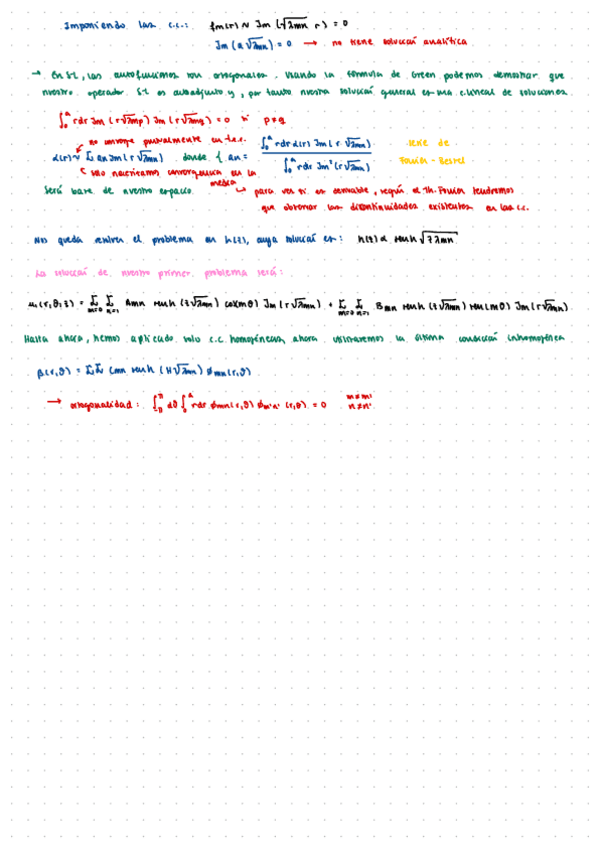 Imponiendo las c.c.: fm(r) ~ Jm (√λmn r) = 0
Jm (a √λmn) = 0 → no tiene solución analítica
→ En SL, las autofunciones son ortogonales. Usando la fórmula de Green podemos demostrar que
nuestro operador SL es autoadjunto y, por tanto nuestra solución general es una c.lineal de soluciones.
∫₀ᵃ rdr Jm (r√λmp) Jm (r√λmq) = 0 si p≠q
no converge puntualmente en las c.c.
α(r) ~ Σ an Jm (r √λmn) donde { an = ∫₀ᵃ rdr α(r) Jm (r √λmn) / ∫₀ᵃ rdr Jm² (r√λmn)
serie de
Fourier - Bessel
solo necesitamos convergencia en la
media
Será base de nuestro espacio.
↪ para ver si es derivable, según el Th. Fourier tendremos
que observar las discontinuidades existentes en las c.c.
Nos queda resolver el problema en h(z), cuya solución es: h(z) α senh √z λmn
La solución de nuestro primer problema será:
u₁(r,θ,z) = Σ m=0 Σ n=1 Amn senh (z√λmn) cos(mθ) Jm (r√λmn) + Σ m=0 Σ n=1 Bmn senh (z√λmn) sen(mθ) Jm (r√λmn)
Hasta ahora, hemos aplicado solo c.c. homogéneas, ahora utilizaremos la última condición inhomogénea
β(r,θ) = ΣΣ Cmn senh (H√λmn) ømn(r,θ)
→ ortogonalidad: ∫₋π^π dθ ∫₀ᵃ rdr ømn(r,θ) øm'n' (r,θ) = 0 m≠m' n≠n'